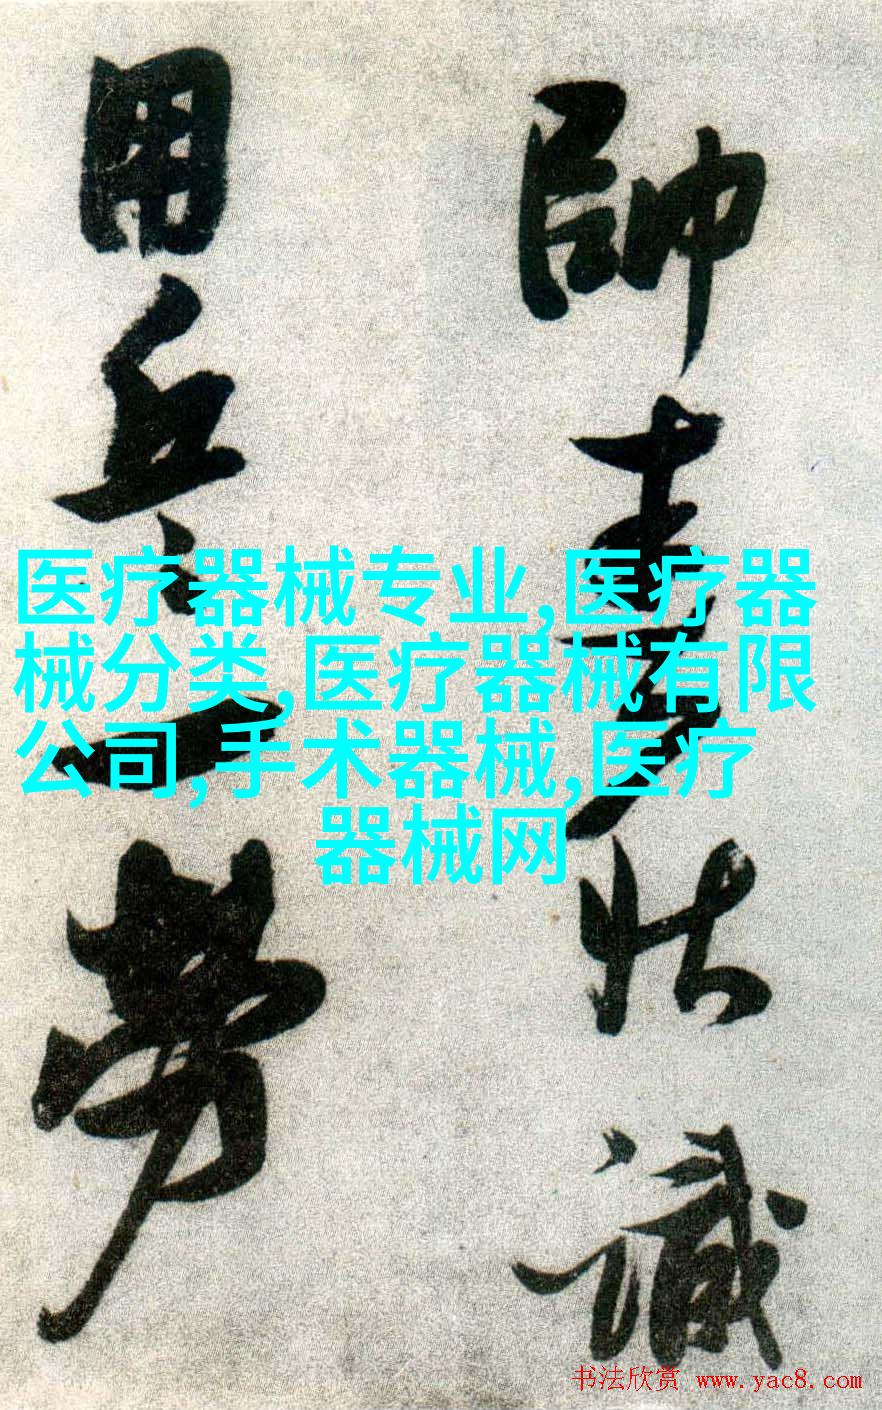 帥壯識
用兵一勞
医疗器械专业,医疗器
械分类,医疗器械有限
公司,手术器械,医疗
器械网
书法欣赏 www.yac8.com